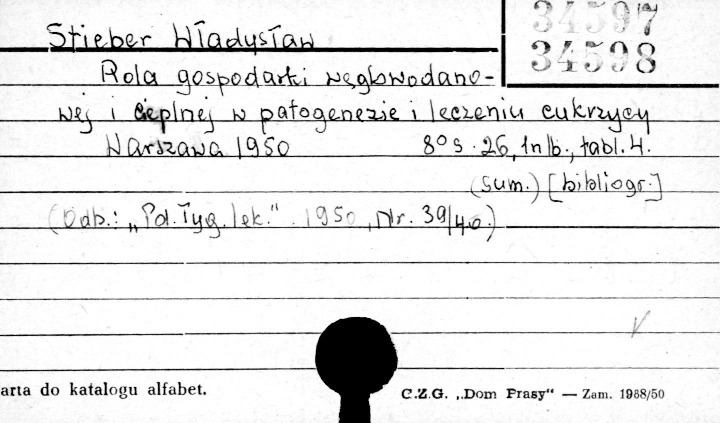 34597
34598
Stieber Władysław
Rola gospodarki węglowodano-
wej i cieplnej w patogenezie i leczeniu cukrzycy
Warszawa 1950 8° s. 26, 1nlb., tabl. 4.
(sum.) [bibliogr.]
(Odb.: „Pol. Tyg. lek." 1950, Nr. 39/40.)
arta do katalogu alfabet.
C.Z.G. „Dom Prasy" — Zam. 1988/50